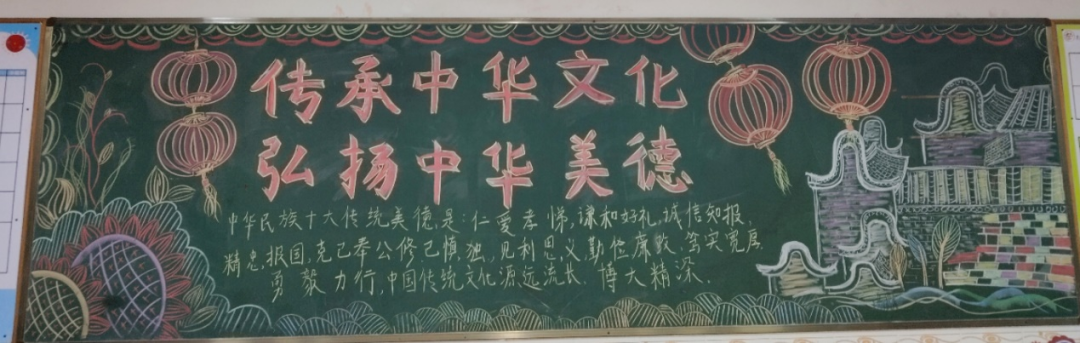 传承中华文化
弘扬中华美德
中华民族十大传统美德是:仁爱孝悌,谦和好礼,诚信知报,
精忠报国,克己奉公修己慎独,见利思义勤俭廉政,笃实宽厚,
勇毅力行,中国传统文化源远流长、博大精深.